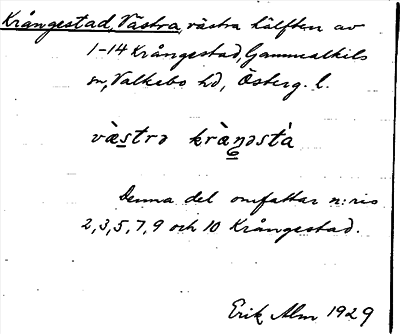 Krångestad, Västra, västra hälften av
1-14 Krångestad, Gammalkils
sn, Valkebo hd, Österg. l.
vàstrə kràŋəstà
Denna del omfattar n:ris
2, 3, 5, 7, 9 och 10 Krångestad.
Erik Alm 1929